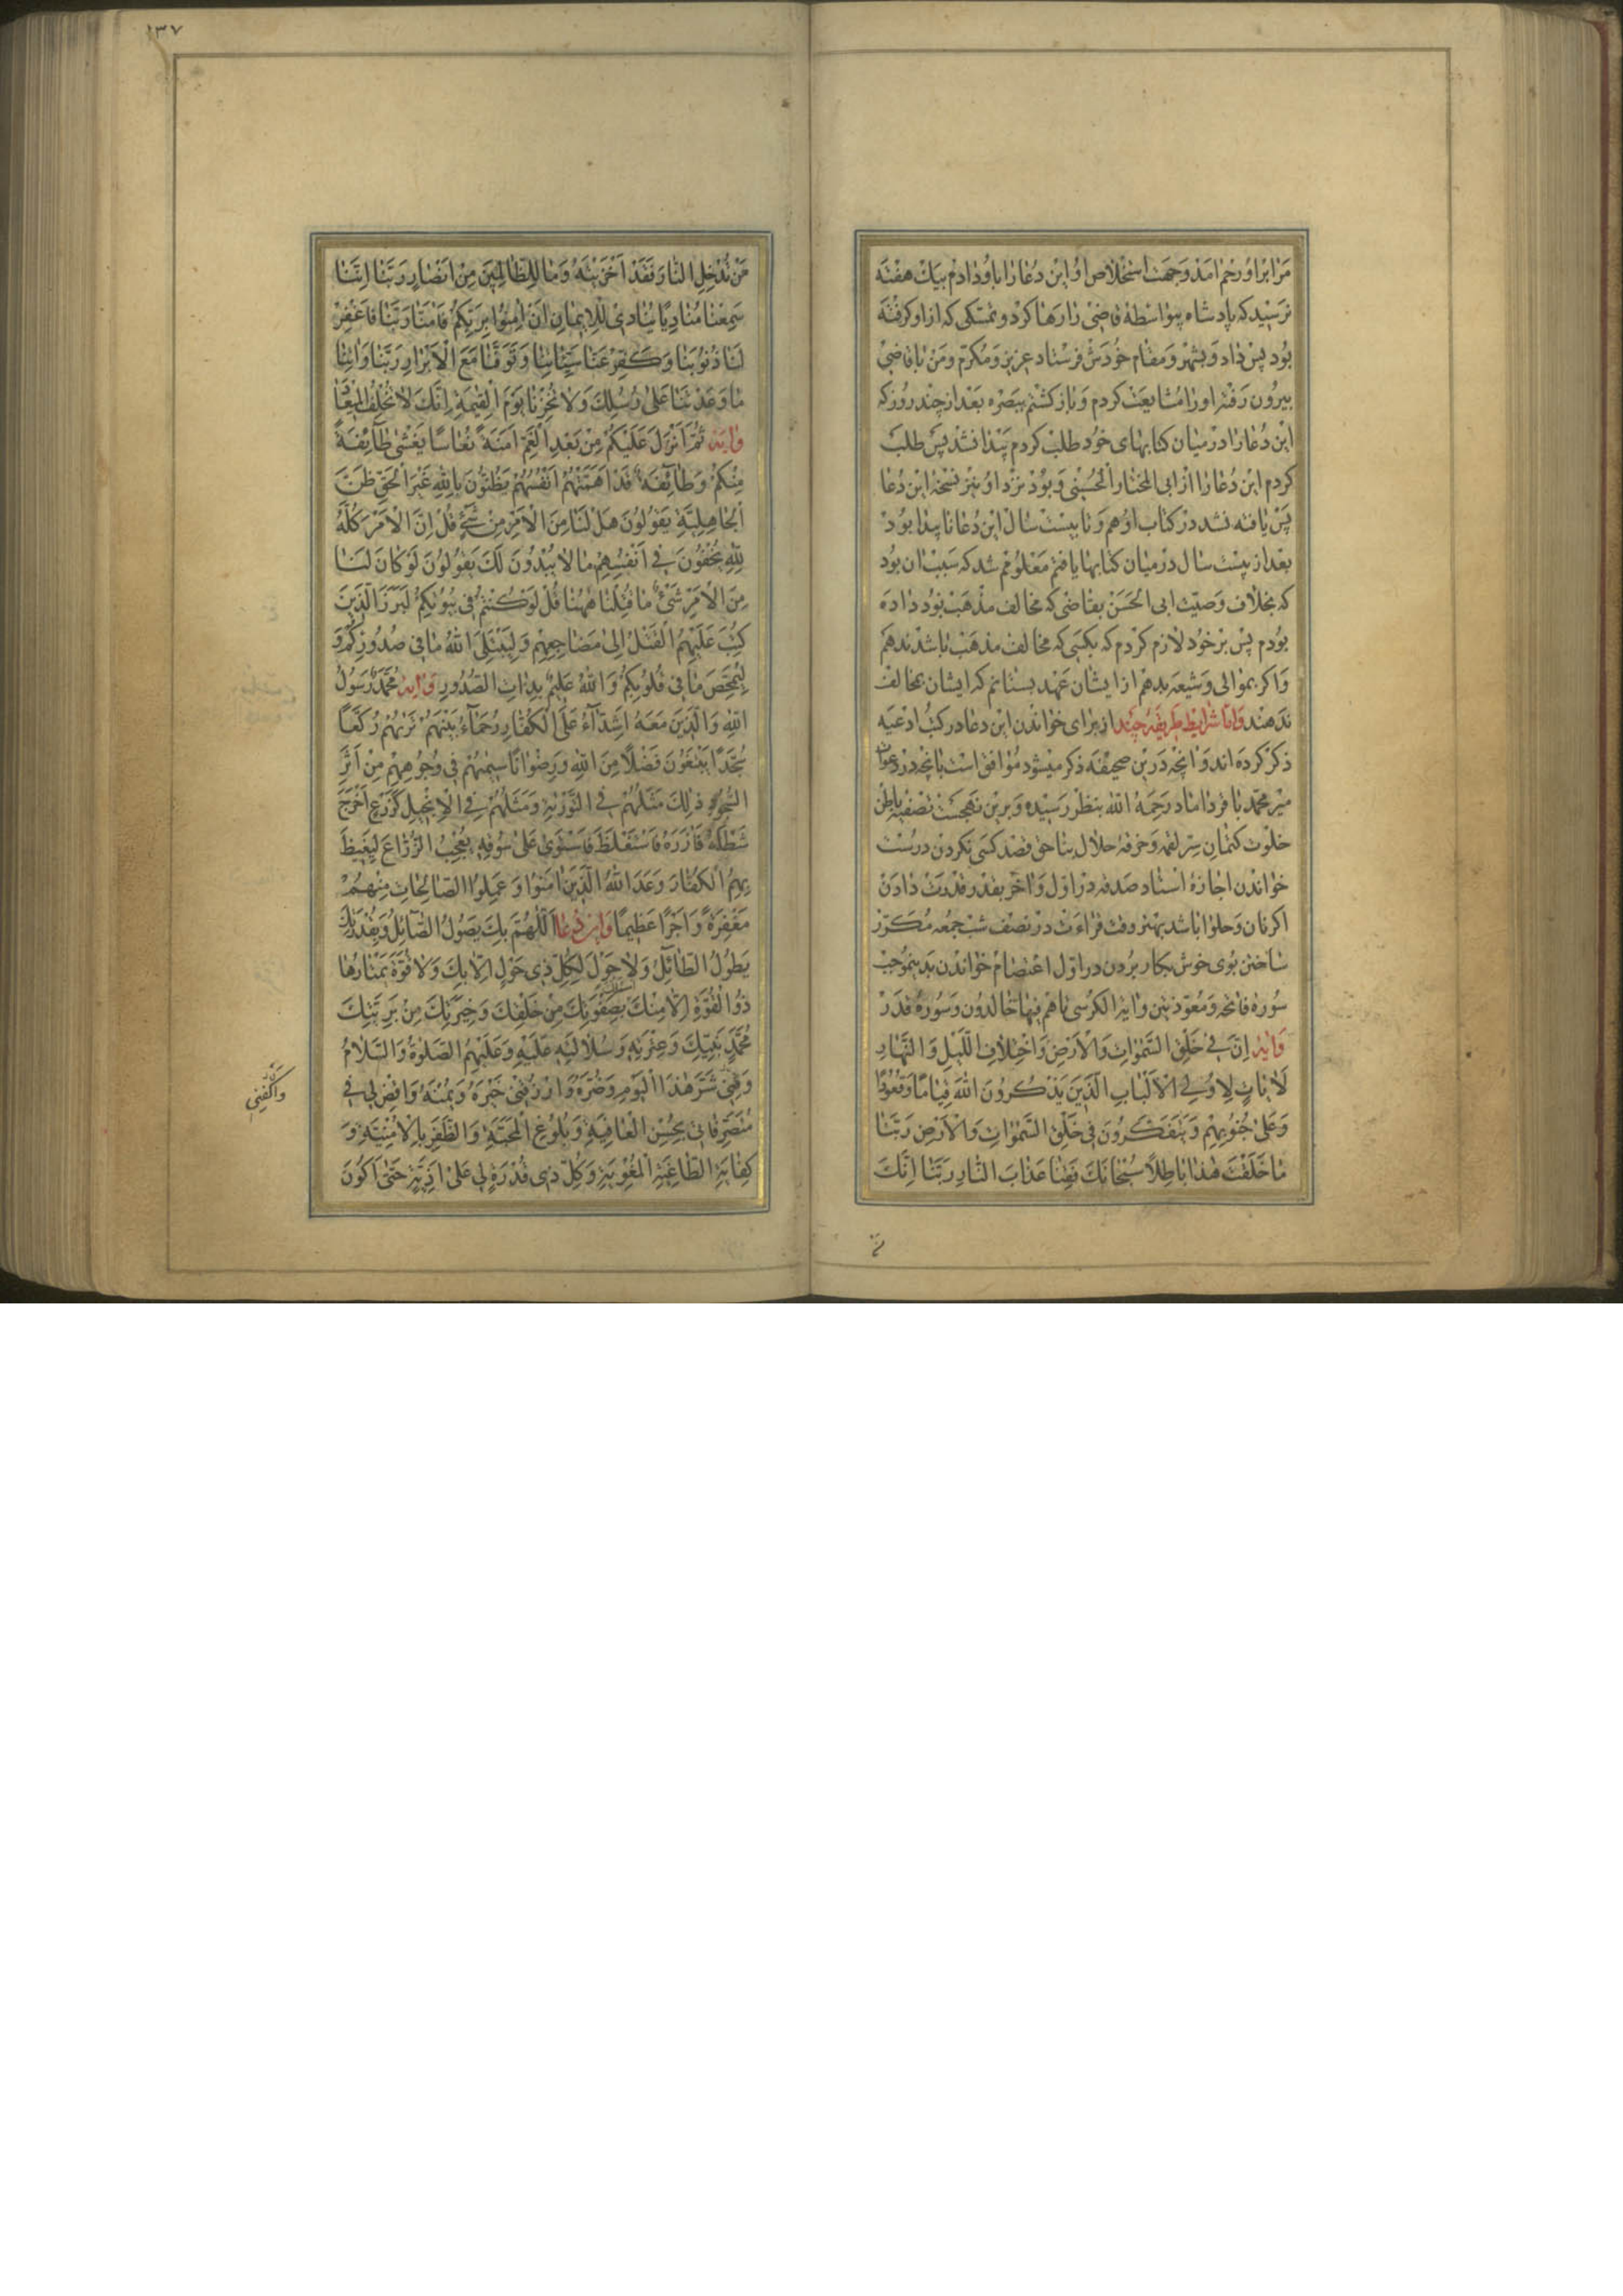 مرا بر او رحم امد و جهت استخلاص او این دعا را باو دادم بیک هفته
نرسید که پادشاه بیواسطه قاضی را رها کرد و تمسکی که از او کرفته
بود پس داد و بشهر و مقام خودش فرستاد عزیز و مکرم و من با قاضی
بیرون رفتم او را مشایعت کردم و باز کشتم ببصره بعد از چند روز که
این دعا را در میان کتابهای خود طلب کردم پیدا نشد پس طلب
کردم این دعا را از ابی المختار الحسینی و بود نزد او نیز نسخه این دعا
پس یافته نشد در کتاب او هم و تا بیست سال این دعا ناپیدا بود
بعد از بیست سال در میان کتابها یافتم معلوم شد که سبب ان بود
که بخلاف وصیت ابی الحسن بقاضی که مخالف مذهب بود داده
بودم پس بر خود لازم کردم که بکسی که مخالف مذهب باشد ندهم
و اکر بموالی و شیعه بدهم از ایشان عهد بستانم که ایشان بمخالف
ندهند و اما شرایط طریقه چند از برای خواندن این دعا در کتب ادعیه
ذکر کرده اند و انچه درین صحیفه ذکر میشود موافق است بانچه در دعوات
میر محمد باقر داماد رحمه الله بنظر رسیده و برین نهجست تصفیه باطن
خلوت کتمان سر لقمه و خرقه حلال بناحق قصد کسی نکردن درست
خواندن اجازه استاد صدقه در اول و اخر بقدر قدرت دادن
اکر نان و حلوا باشد بهتر وقت قراءت در نصف شب جمعه مکرر
ساختن بوی خوش بکار بردن در اول اعتصام خواندن بدینموجب
سوره فاتحه و معوذتین و ایة الکرسی تا هم فیها خالدون و سوره قدر
وایه اِنَّ فی خَلْقِ السَّمٰواتِ وَالْاَرْضِ وَاخْتِلافِ اللَّیْلِ وَالنَّهارِ
لَاٰیاتٍ لِاُولِی الْاَلْبابِ الَّذینَ یَذْکُرُونَ اللّٰهَ قِیامًا وَقُعُودًا
وَعَلٰی جُنُوبِهِمْ وَیَتَفَکَّرُونَ فی خَلْقِ السَّمٰواتِ وَالْاَرْضِ رَبَّنا
ما خَلَقْتَ هٰذا باطِلًا سُبْحانَکَ فَقِنا عَذابَ النّارِ رَبَّنا اِنَّکَ
من
۱۳۷
مَنْ تُدْخِلِ النّارَ فَقَدْ اَخْزَیْتَهُ وَما لِلظّالِمینَ مِنْ اَنْصارٍ رَبَّنا اِنَّنا
سَمِعْنا مُنادِیًا یُنادی لِلْایمانِ اَنْ اٰمِنُوا بِرَبِّکُمْ فَاٰمَنّا رَبَّنا فَاغْفِرْ
لَنا ذُنُوبَنا وَکَفِّرْ عَنّا سَیِّئاتِنا وَتَوَفَّنا مَعَ الْاَبْرارِ رَبَّنا وَاٰتِنا
ما وَعَدْتَنا عَلٰی رُسُلِکَ وَلا تُخْزِنا یَوْمَ الْقِیٰمَةِ اِنَّکَ لا تُخْلِفُ الْمیعادَ
وایه ثُمَّ اَنْزَلَ عَلَیْکُمْ مِنْ بَعْدِ الْغَمِّ اَمَنَةً نُعاسًا یَغْشٰی طآئِفَةً
مِنْکُمْ وَطآئِفَةٌ قَدْ اَهَمَّتْهُمْ اَنْفُسُهُمْ یَظُنُّونَ بِاللّٰهِ غَیْرَ الْحَقِّ ظَنَّ
الْجاهِلِیَّةِ یَقُولُونَ هَلْ لَنا مِنَ الْاَمْرِ مِنْ شَیْءٍ قُلْ اِنَّ الْاَمْرَ کُلَّهُ
لِلّٰهِ یُخْفُونَ فی اَنْفُسِهِمْ ما لا یُبْدُونَ لَکَ یَقُولُونَ لَوْ کانَ لَنا
مِنَ الْاَمْرِ شَیْءٌ ما قُتِلْنا هٰهُنا قُلْ لَوْ کُنْتُمْ فی بُیُوتِکُمْ لَبَرَزَ الَّذینَ
کُتِبَ عَلَیْهِمُ الْقَتْلُ اِلٰی مَضاجِعِهِمْ وَلِیَبْتَلِیَ اللّٰهُ ما فی صُدُورِکُمْ وَ
لِیُمَحِّصَ ما فی قُلُوبِکُمْ وَاللّٰهُ عَلیمٌ بِذاتِ الصُّدُورِ وایه مُحَمَّدٌ رَسُولُ
اللّٰهِ وَالَّذینَ مَعَهُ اَشِدّآءُ عَلَی الْکُفّارِ رُحَمآءُ بَیْنَهُمْ تَرٰیهُمْ رُکَّعًا
سُجَّدًا یَبْتَغُونَ فَضْلًا مِنَ اللّٰهِ وَرِضْوانًا سیمٰیهُمْ فی وُجُوهِهِمْ مِنْ اَثَرِ
السُّجُودِ ذٰلِکَ مَثَلُهُمْ فی التَّوْرٰیةِ وَمَثَلُهُمْ فی الْاِنْجیلِ کَزَرْعٍ اَخْرَجَ
شَطْئَهُ فَاٰزَرَهُ فَاسْتَغْلَظَ فَاسْتَوٰی عَلٰی سُوقِهِ یُعْجِبُ الزُّرّاعَ لِیَغیظَ
بِهِمُ الْکُفّارَ وَعَدَ اللّٰهُ الَّذینَ اٰمَنُوا وَعَمِلُوا الصّالِحاتِ مِنْهُمْ
مَغْفِرَةً وَاَجْرًا عَظیمًا واین دعا اَللّٰهُمَّ بِکَ یَصُولُ الصّآئِلُ وَبِقُدْرَتِکَ
یَطُولُ الطّآئِلُ وَلا حَوْلَ لِکُلِّ ذی حَوْلٍ اِلّا بِکَ وَلا قُوَّةَ یَمْتارُها
ذُوالْقُوَّةِ اِلّا مِنْکَ بِصَفْوَتِکَ مِنْ خَلْقِکَ وَخِیَرَتِکَ مِنْ بَرِیَّتِکَ
مُحَمَّدٍ نَبِیِّکَ وَعِتْرَتِهِ وَسُلالَتِهِ عَلَیْهِ وَعَلَیْهِمُ الصَّلٰوةُ وَالسَّلامُ
وَقِنی شَرَّ هٰذَا الْیَوْمِ وَضُرَّهُ وَارْزُقْنی خَیْرَهُ وَیُمْنَهُ وَاقْضِ لی فی
مُتَصَرِّفاتی بِحُسْنِ الْعافِیَةِ وَبُلُوغِ الْمَحَبَّةِ وَالظَّفَرِ بِالْاُمْنِیَّةِ وَ
کِفایَةِ الطّاغِیَةِ الْمُغْوِیَةِ وَکُلِّ ذی قُدْرَةٍ لی عَلٰی اَذِیَّةٍ حَتّٰی اَکُونَ
واکفنی